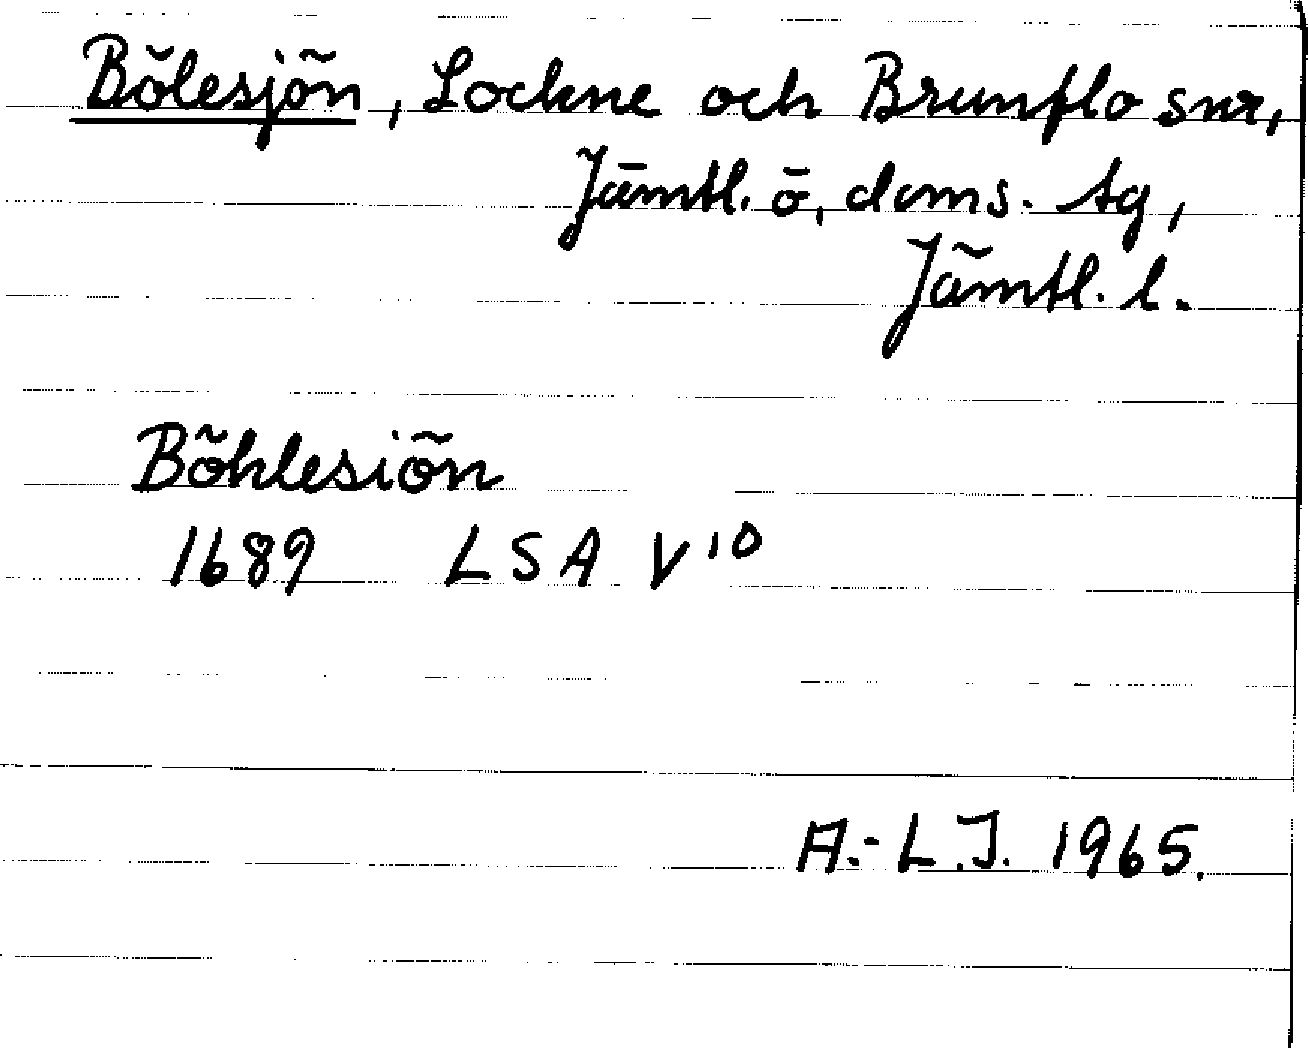 Bölesjön, Lockne och Brunflo snr,
Jämtl. ö. doms. tg,
Jämtl. l.
Böhlesiön
1689 LSA V¹⁰
A.-L.J. 1965.